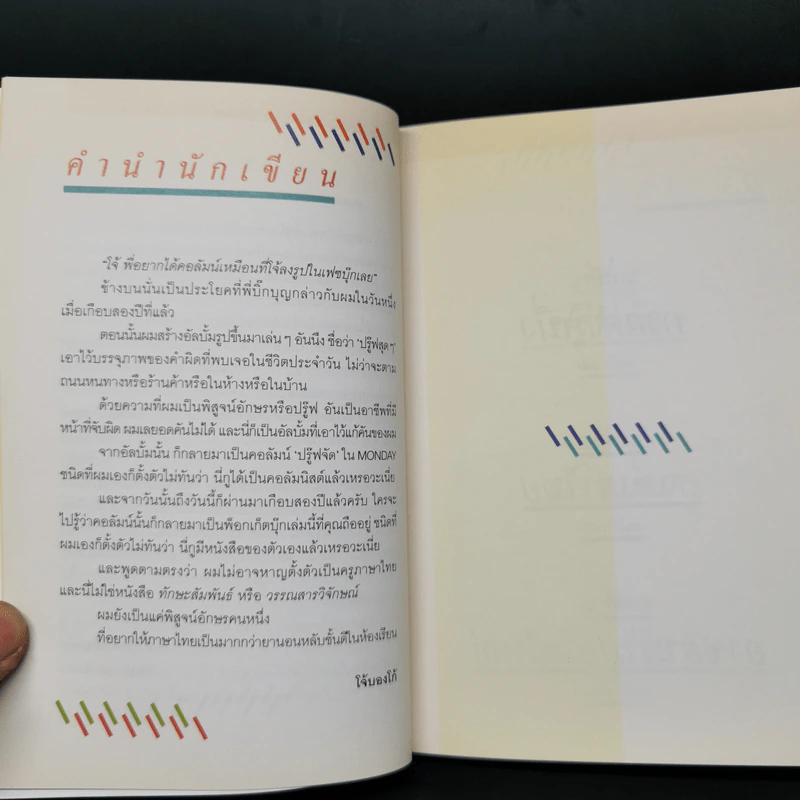 คำนำนักเขียน
"โจ้ พี่อยากได้คอลัมน์เหมือนที่โจ้ลงรูปในเฟซบุ๊กเลย"
ข้างบนนั่นเป็นประโยคที่พี่บิ๊กบุญกล่าวกับผมในวันหนึ่ง
เมื่อเกือบสองปีที่แล้ว
ตอนนั้นผมสร้างอัลบั้มรูปขึ้นมาเล่น ๆ อันนึง ชื่อว่า 'ปรู๊ฟสุด ๆ'
เอาไว้บรรจุภาพของคำผิดที่พบเจอในชีวิตประจำวัน ไม่ว่าจะตาม
ถนนหนทางหรือร้านค้าหรือในห้างหรือในบ้าน
ด้วยความที่ผมเป็นพิสูจน์อักษรหรือปรู๊ฟ อันเป็นอาชีพที่มี
หน้าที่จับผิด ผมเลยอดคันไม่ได้ และนี่ก็เป็นอัลบั้มที่เอาไว้แก้คันของผม
จากอัลบั้มนั้น ก็กลายมาเป็นคอลัมน์ 'ปรู๊ฟจัด' ใน MONDAY
ชนิดที่ผมเองก็ตั้งตัวไม่ทันว่า นี่กูได้เป็นคอลัมนิสต์แล้วเหรอวะเนี่ย
และจากวันนั้นถึงวันนี้ก็ผ่านมาเกือบสองปีแล้วครับ ใครจะ
ไปรู้ว่าคอลัมน์นั้นก็กลายมาเป็นพ็อกเก็ตบุ๊กเล่มนี้ที่คุณถืออยู่ ชนิดที่
ผมเองก็ตั้งตัวไม่ทันว่า นี่กูมีหนังสือของตัวเองแล้วเหรอวะเนี่ย
และพูดตามตรงว่า ผมไม่อาจหาญตั้งตัวเป็นครูภาษาไทย
และนี่ไม่ใช่หนังสือ ทักษะสัมพันธ์ หรือ วรรณสารวิจักษณ์
ผมยังเป็นแค่พิสูจน์อักษรคนหนึ่ง
ที่อยากให้ภาษาไทยเป็นมากกว่ายานอนหลับชั้นดีในห้องเรียน
โจ้บองโก้